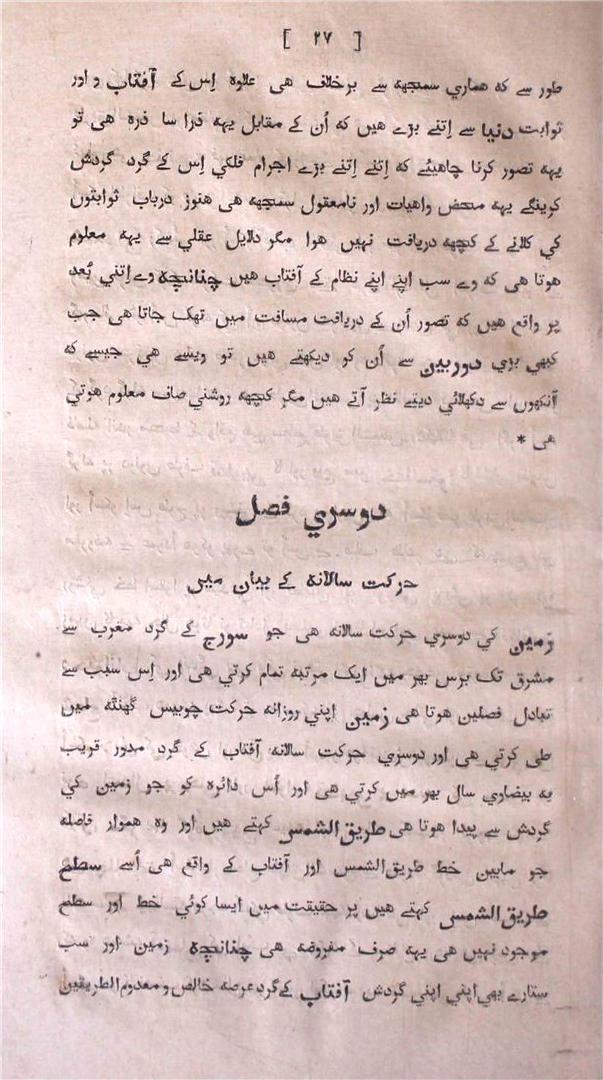 [ ۲۷ ]
طور سے که هماري سمجهه سے برخلاف هی علاوه اِس کے آفتاب و اور
ثوابت دنیا سے اِتنے بڑے هیں که اُن کے مقابل یهه ذرا سا ذره هی تو
یهه تصور کرنا چاهیئے که اِتنے اِتنے بڑے اجرام فلکي اِس کے گرد گردش
کرینگے یهه محض واهیات اور نامعقول سمجهه هی هنوز درباب ثوابتوں
کي کلانے کے کچهه دریافت نهیں هوا مگر دلایل عقلي سے یهه معلوم
هوتا هی که وے سب اپنے اپنے نظام کے آفتاب هیں چنانچه وے اِتني بُعد
پر واقع هیں که تصور اُن کے دریافت مسافت میں تهک جاتا هی جب
کبهي بڑي دوربین سے اُن کو دیکهتے هیں تو ویسے هي جیسے که
آنکهوں سے دکهلائي دیتے نظر آتے هیں مگر کچهه روشني صاف معلوم هوتي
هی *
دوسري فصل
حرکت سالانه کے بیان میں
زمین کي دوسري حرکت سالانه هی جو سورج کے گرد مغرب سے
مشرق تک برس بهر میں ایک مرتبه تمام کرتي هی اور اِس سبب سے
تبادل فصلین هوتا هی زمین اپني روزانه حرکت چوبیس گهنٹه میں
طی کرتي هی اور دوسري حرکت سالانه آفتاب کے گرد مدور قریب
به بیضاوي سال بهر میں کرتي هی اور اُس دائره کو جو زمین کي
گردش سے پیدا هوتا هی طریق الشمس کهتے هیں اور وه هموار فاصله
جو مابین خط طریق الشمس اور آفتاب کے واقع هی اُسے سطح
طریق الشمس کهتے هیں پر حقیقت میں ایسا کوئي خط اور سطح
موجود نهیں هی یهه صرف مفروضه هی چنانچه زمین اور سب
ستارے بهي اپني اپني گردش آفتاب کے گرد عرصه خالص و معدوم الطریقین